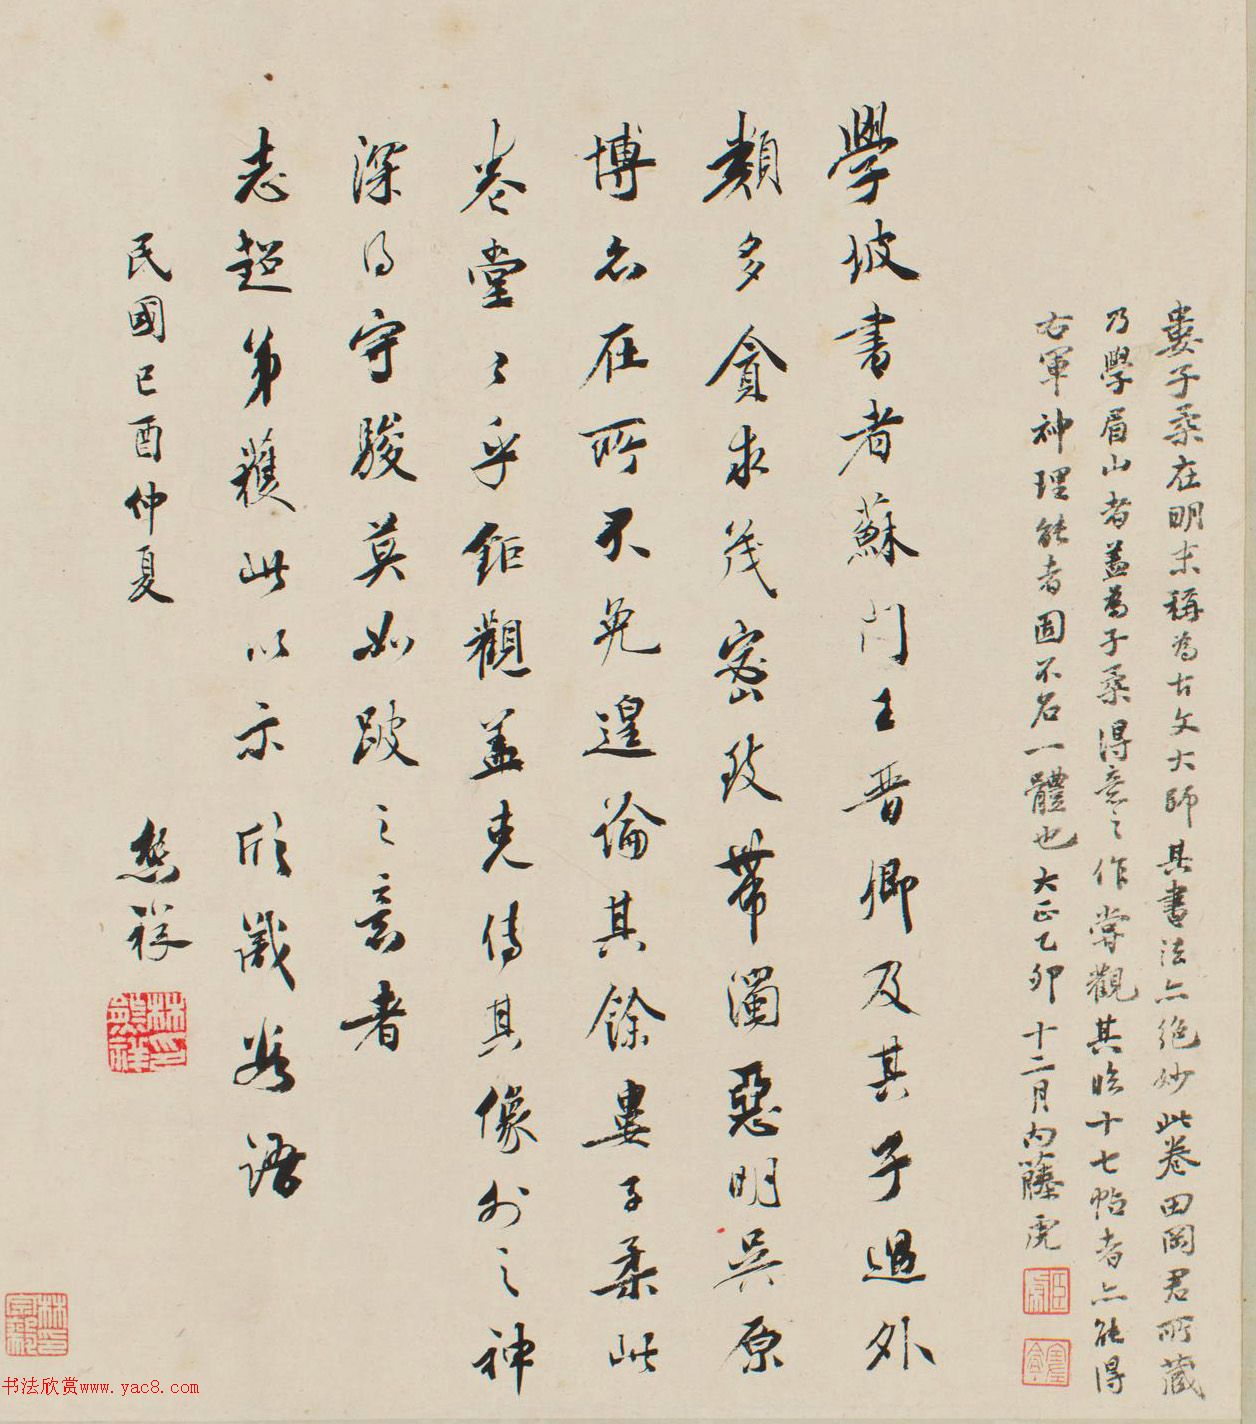 婁子柔在明末稱為古文大師其書法亦絕妙此卷田岡君所藏
乃學眉山者蓋為子柔得意之作嘗觀其臨十七帖者亦能得
右軍神理能者固不名一體也大正乙卯十二月內藤虎
學坡書者蘇門王晉卿及其子過外
類多貪求茂密致帶濁惡明吳原
博名在所不免遑論其餘婁子柔此
卷堂〻乎鉅觀蓋克傳其像外之神
深得守駿莫如跛之意者
志超弟獲此以示欣識數語
民國己酉仲夏
熊祥
林熊祥印
书法欣赏www.yac8.com